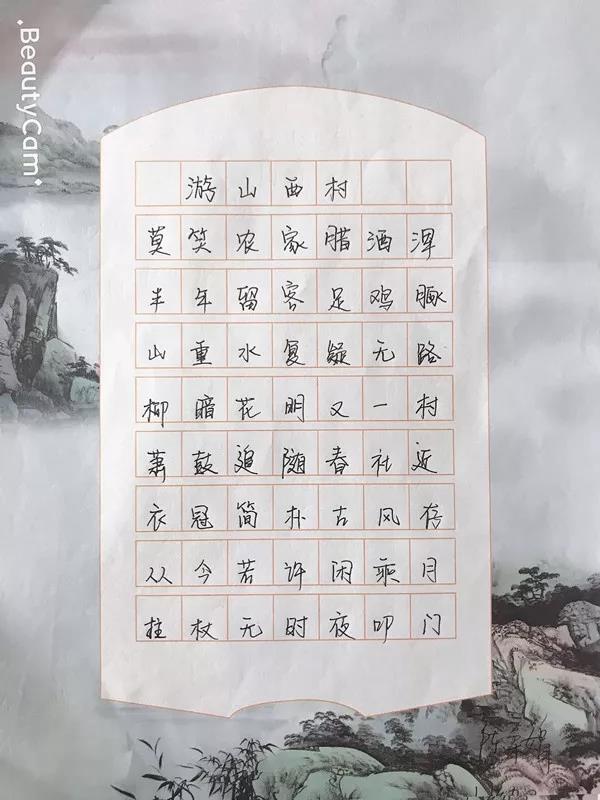 .BeautyCam.
游山西村
莫笑农家腊酒浑
丰年留客足鸡豚
山重水复疑无路
柳暗花明又一村
萧鼓追随春社近
衣冠简朴古风存
从今若许闲乘月
柱杖无时夜叩门